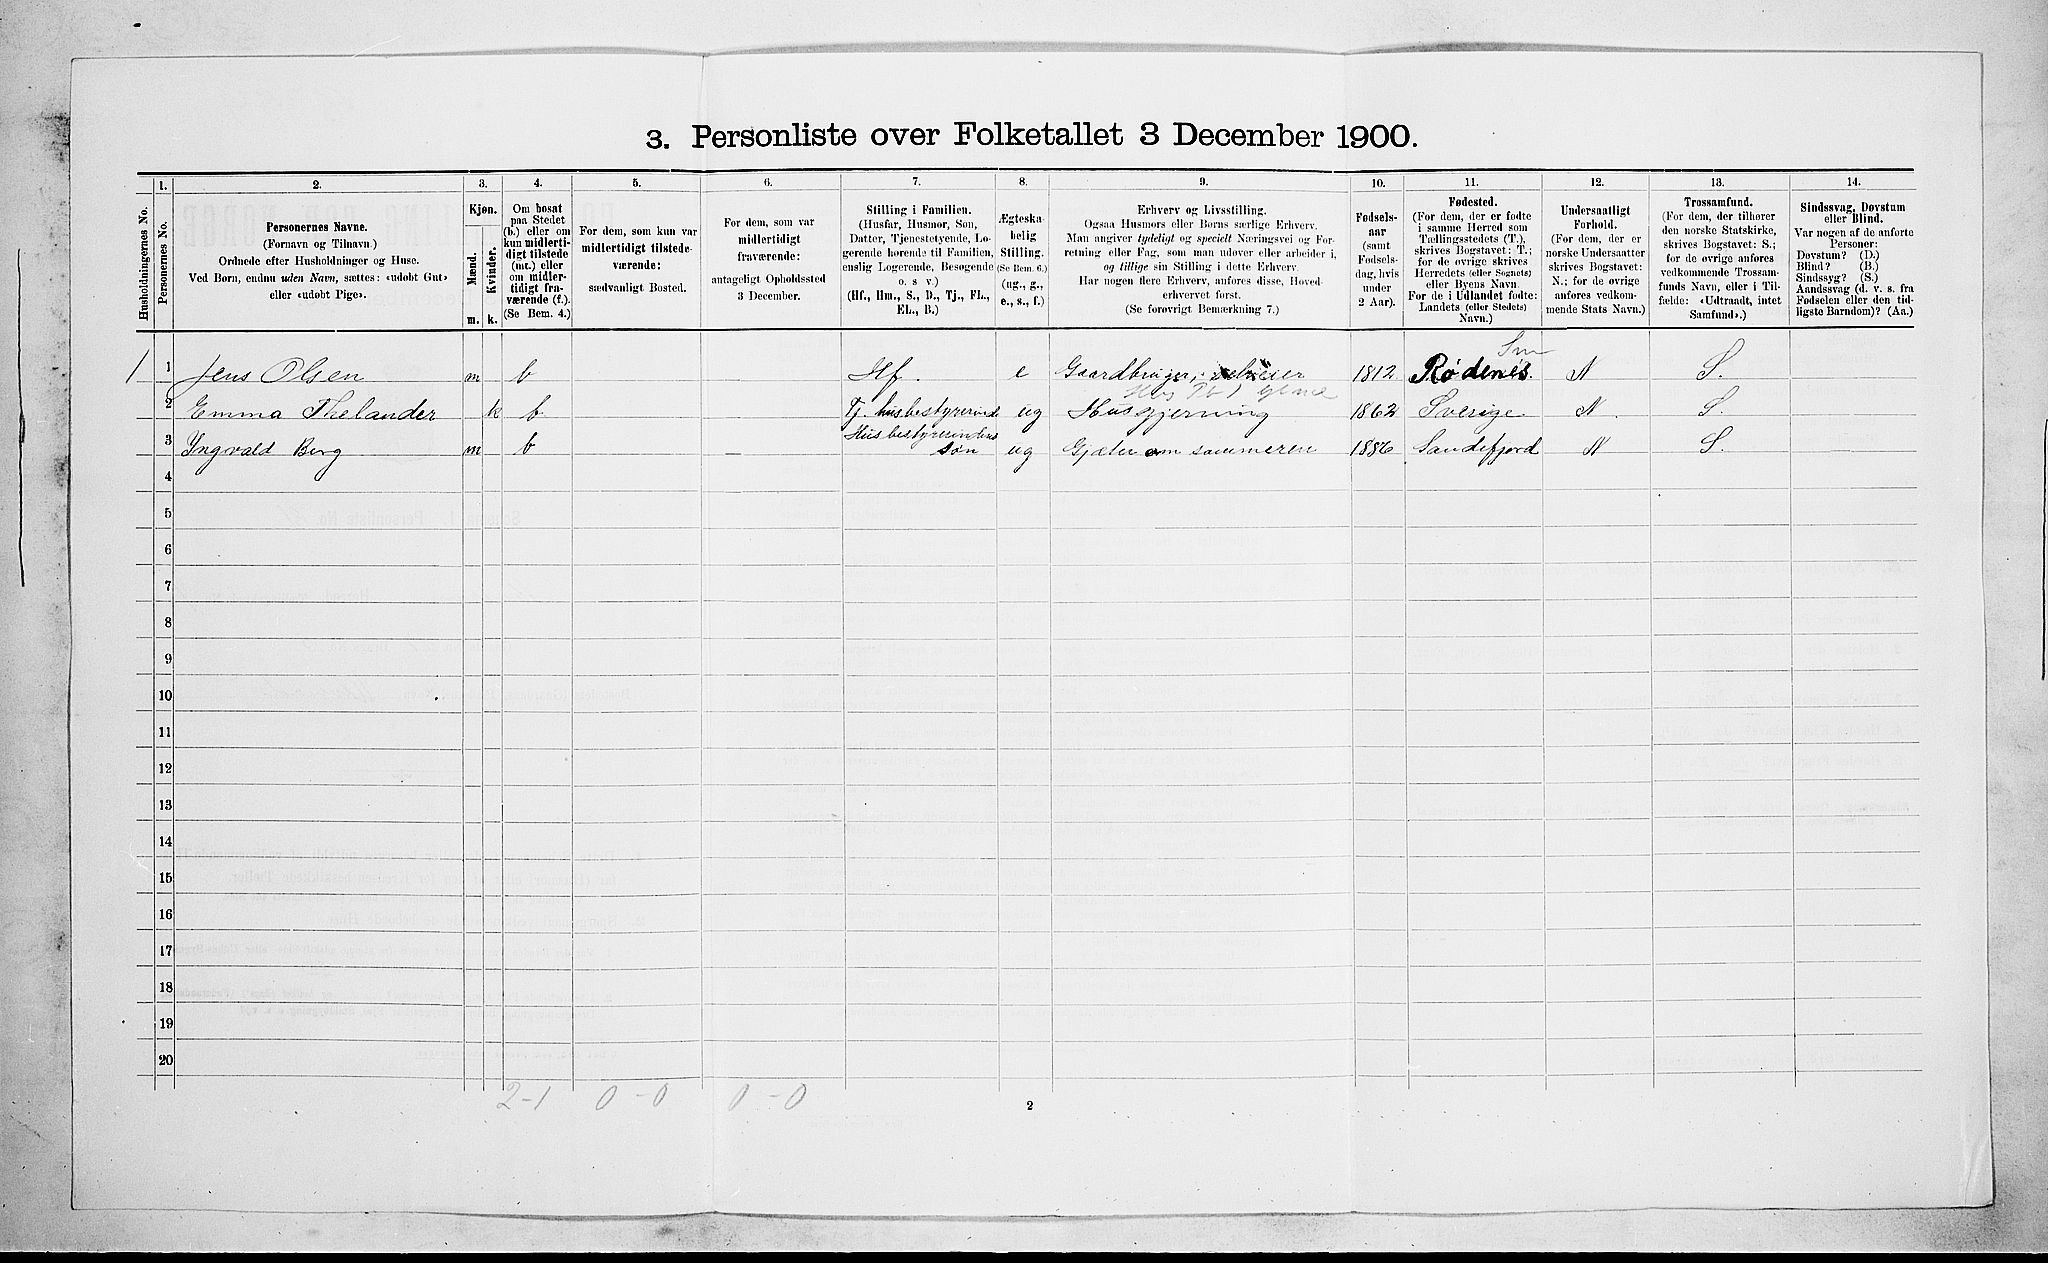 3. Personliste over Folketallet 3 December 1900.
Husholdningernes No.
1.
Personernes No.
2.
Personernes Navne.
(Fornavn og Tilnavn.)
Ordnede efter Husholdninger og Huse.
Ved Børn, endnu uden Navn, sættes: «udøbt Gut»
eller «udøbt Pige».
3.
Kjøn.
Mænd.
Kvinder.
m.
k.
4.
Om bosat
paa Stedet
(b.) eller om
kun midlerti-
digt tilstede
(mt.) eller
om midler-
tidigt fra-
værende (f.).
(Se Bem. 4.)
5.
For dem, som kun var
midlertidigt tilstede-
værende:
sædvanligt Bosted.
6.
For dem, som var
midlertidigt
fraværende:
antageligt Opholdssted
3 December.
7.
Stilling i Familien.
(Husfar, Husmor, Søn,
Datter, Tjenestetyende, Lo-
gerende hørende til Familien,
enslig Logerende, Besøgende
o. s. v.)
(Hf., Hm., S., D., Tj., FL.,
EL., B.)
8.
Ægteska-
belig
Stilling.
(Se Bem. 6.)
(ug., g.,
e., s., f.)
9.
Erhverv og Livsstilling.
Ogsaa Husmors eller Børns særlige Erhverv.
Man angiver tydeligt og specielt Næringsvei og For-
retning eller Fag, som man udøver eller arbeider i,
og tillige sin Stilling i dette Erhverv.
Har nogen flere Erhverv, anføres disse, Hoved-
erhvervet først.
(Se forøvrigt Bemærkning 7.)
10.
Fødsels-
aar
(samt
Fødsels-
dag, hvis
under
2 Aar).
11.
Fødested.
(For dem, der er fødte
i samme Herred som
Tællingsstedets (T.),
skrives Bogstavet: T.;
for de øvrige skrives
Herredets (eller Sognets)
eller Byens Navn.
For de i Udlandet fødte:
Landets (eller Stedets)
Navn.)
12.
Undersaatligt
Forhold.
(For dem, der er
norske Undersaatter
skrives Bogstavet:
N.; for de øvrige
anføres vedkom-
mende Stats Navn.)
13.
Trossamfund.
(For dem, der tilhører
den norske Statskirke,
skrives Bogstavet: S.;
for de øvrige anføres
vedkommende Trossam-
funds Navn, eller i Til-
fælde: «Udtraadt, intet
Samfund».)
14.
Sindssvag, Døvstum
eller Blind.
Var nogen af de anførte
Personer:
Døvstum? (D.)
Blind? (B.)
Sindssyg? (S.)
Aandssvag (d. v. s. fra
Fødselen eller den tid-
ligste Barndom)? (Aa.)
Sm
1 1 Jens Olsen m b Hf. e Gaardbruger, selveier 1812 Rødenes N S.
2 Emma Thelander k b Tj. husbestyrerinde ug Husgjerning 1862 Sverige N. S.
Husbestyrerindens
3 Yngvald Berg m b — søn ug Gjæter om sommeren 1886 Sandefjord N S. —
4
5
6
7
8
9
10
11
12
13
14
15
16
17
18
19
20
2-1 0-0 0-0
2